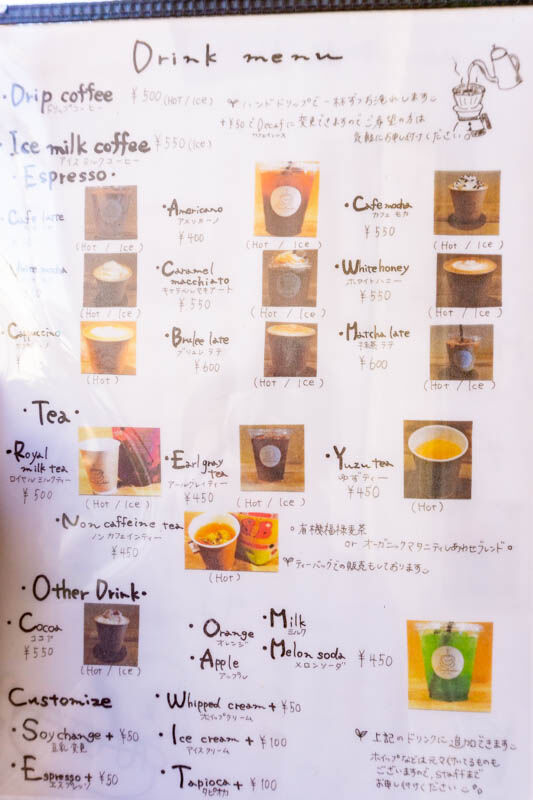 Drink menu
・Drip coffee ¥500(HOT/Ice)
ドリップコーヒー
ハンドドリップで一杯ずつお淹れします
+¥50でDecafに変更できますのでご希望の方は
カフェインレス
気軽にお申し付けください。
・Ice milk coffee ¥550(Ice)
アイスミルクコーヒー
・Espresso・
・Cafe latte
カフェラテ
(Hot / Ice)
・Americano
アメリカーノ
¥400
(Hot / Ice)
・Cafe mocha
カフェ モカ
¥550
(Hot / Ice)
mocha
(Hot / Ice)
・Caramel
macchiato
キャラメルマキアート
¥550
(Hot / Ice)
・White honey
ホワイトハニー
¥550
(Hot / Ice)
・Cappuccino
(Hot)
・Brulee late
ブリュレ ラテ
¥600
(Hot / Ice)
・Matcha late
抹茶 ラテ
¥600
(Hot / Ice)
・Tea・
・Royal
milk tea
ロイヤルミルクティー
¥500
(Hot / Ice)
・Earl gray
tea
アールグレイティー
¥450
(Hot / Ice)
・Yuzu tea
ゆずティー
¥450
(Hot)
・Non caffeine tea
ノンカフェインティー
¥450
(Hot)
・有機福禄麦茶
or オーガニックマタニティしあわせブレンド。
ティーバッグでの販売もしております
・Other Drink・
・Cocoa
ココア
¥550
(Hot / Ice)
・Orange
オレンジ
・Apple
アップル
・Milk
ミルク
・Melon soda ¥450
メロンソーダ
Customize
・Soy change + ¥50
豆乳変更
・Espresso + ¥50
エスプレッソ
・Whipped cream + ¥50
ホイップクリーム
・Ice cream + ¥100
アイスクリーム
・Tapioca + ¥100
タピオカ
上記のドリンクに追加できます
ホイップなどは元々ついてるものも
ございますので、staffまで
お申し付けください